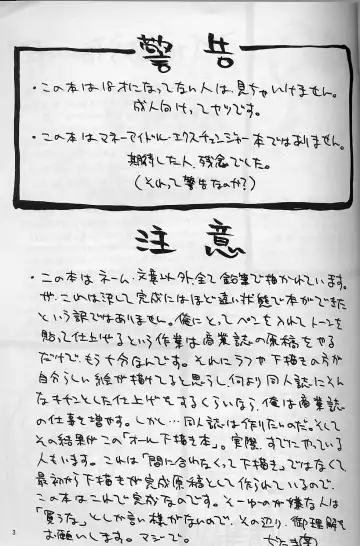 警告
・この本は18才になってない人は見ちゃいけません。
成人向けってヤツです。
・この本はマネーアイドル・エクスチェンジャー本ではありません。
期待した人、残念でした。
(それって警告なのか?)
注意
・この本はネーム・文章以外、全て鉛筆で描かれています。
が、これは決して完成にはほど遠い状態で本ができた
という訳ではありません。俺にとってペンを入れてトーンを
貼って仕上げるという作業は商業誌の原稿をやる
だけで、もう十分なんです。それにラフや下描きの方が
自分らしい絵が描けてると思うし、何より同人誌にそん
なキチンとした仕上げをするくらいなら、俺は商業誌
の仕事を増やす。しかし…同人誌は作りたいのだ。そして
その結果がこの「オール下描き本」。実際、すでにやっている
人もいます。これは「間に合わなくって下描き」ではなくて
最初から下描きが完成原稿として作られているので、
この本はこれで完成なのです。そーゆのが嫌な人は
「買うな」としか言い様がないので、その辺り、御理解を
お願いします。マジで。
3